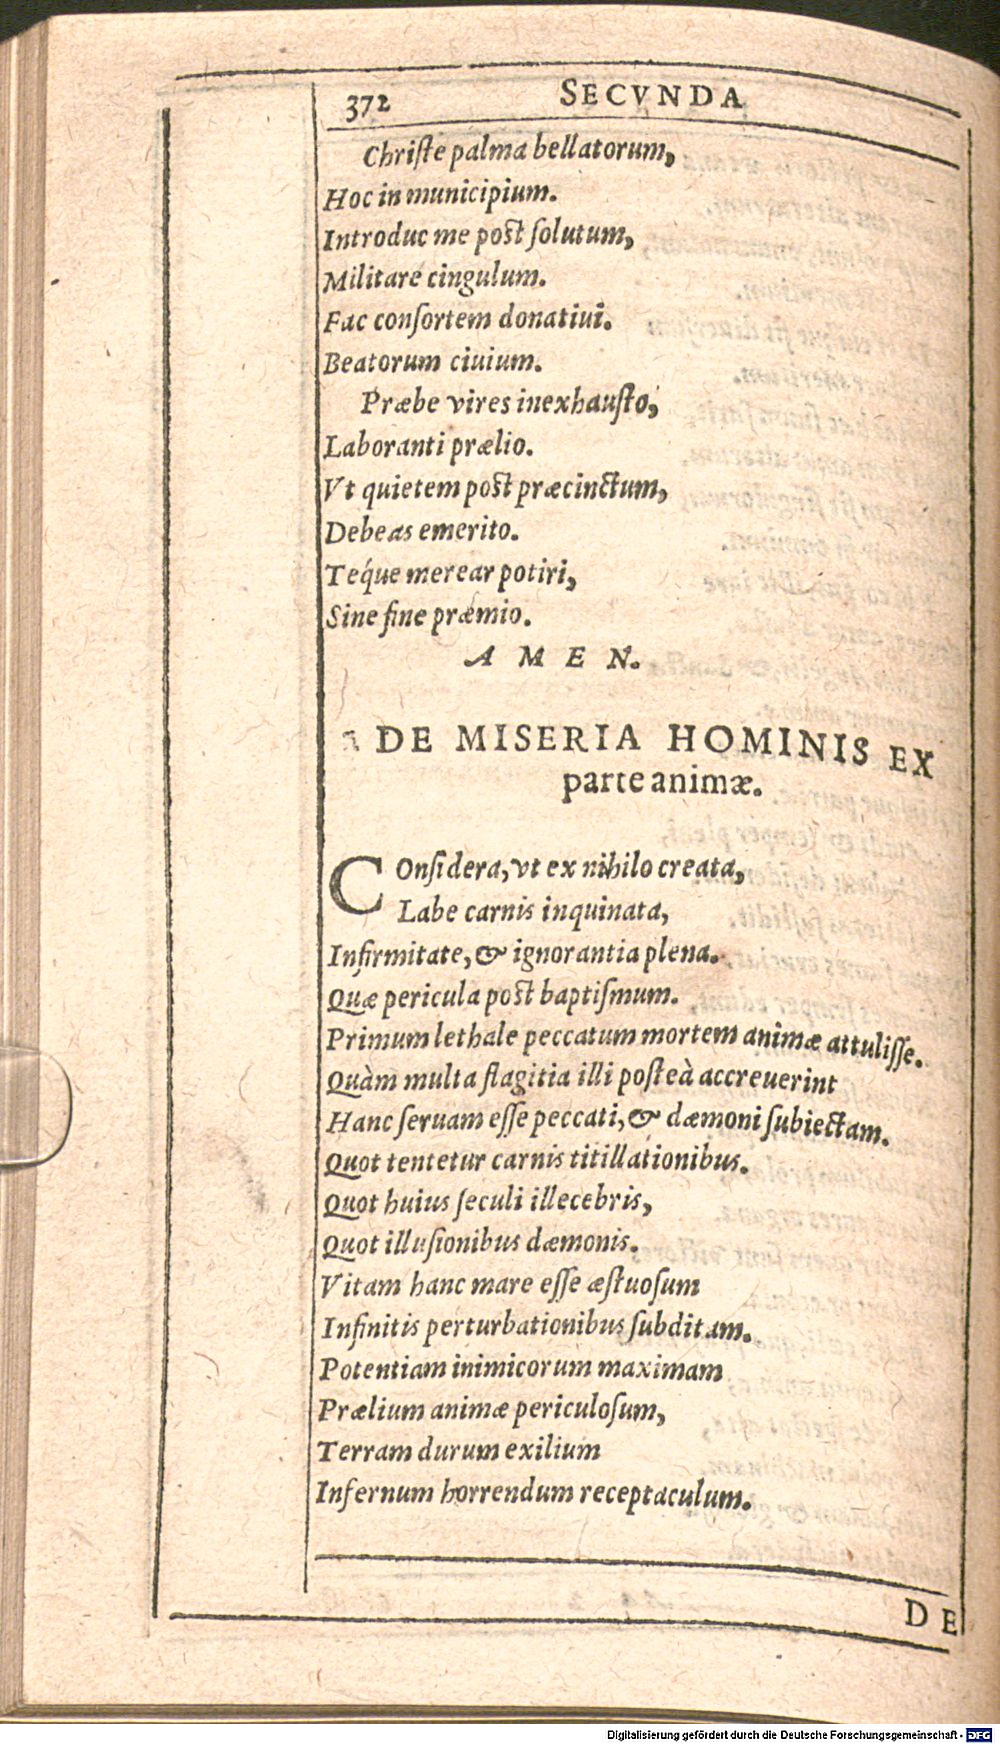 372 SECVNDA
Chriſte palma bellatorum,
Hoc in municipium.
Introduc me poſt ſolutum,
Militare cingulum.
Fac conſortem donatiui.
Beatorum ciuium.
Præbe vires inexhauſto,
Laboranti prælio.
Vt quietem poſt præcinctum,
Debeas emerito.
Teq́ue merear potiri,
Sine fine præmio.
A M E N.
DE MISERIA HOMINIS EX
parte animæ.
COnſidera, vt ex nihilo creata,
Labe carnis inquinata,
Infirmitate, & ignorantia plena.
Quæ pericula poſt baptiſmum.
Primum lethale peccatum mortem animæ attuliſſe.
Quàm multa flagitia illi poſteà accreuerint
Hanc ſeruam eſſe peccati, & dæmoni ſubiectam.
Quot tentetur carnis titillationibus.
Quot huius ſeculi illecebris,
Quot illuſionibus dæmonis.
Vitam hanc mare eſſe æſtuoſum
Infinitis perturbationibus ſubditam.
Potentiam inimicorum maximam
Prælium animæ periculoſum,
Terram durum exilium
Infernum horrendum receptaculum.
DE
Digitalisierung gefördert durch die Deutsche Forschungsgemeinschaft - DFG